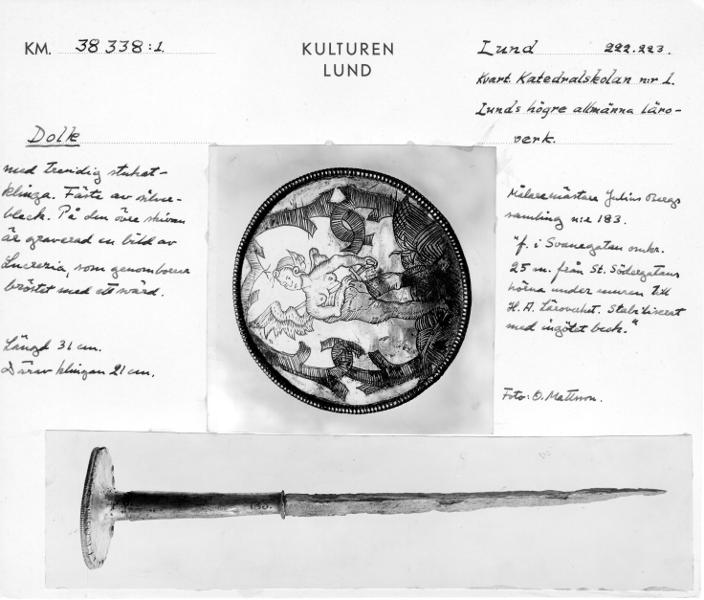 KM. 38 338:1.
KULTUREN
LUND
Lund 222.223.
Kvart. Katedralskolan n:r 1.
Lunds högre allmänna läro-
verk.
Dolk
med treeidig stuket-
klinga. Fäste av silver-
bleck. På den övre skivan
är graverad en bild av
Lucretia, som genomborrar
bröstet med ett svärd.
Längd 31 cm.
Därav klingan 21 cm.
Målaremästare Julius Obergs
samling n:r 183.
"f. i Svanegatan omkr.
25 m. från St. Södergatans
hörna under muren till
H. A. Läroverket. Stabiliserat
med ingötet beck."
Foto: O. Mattsson.